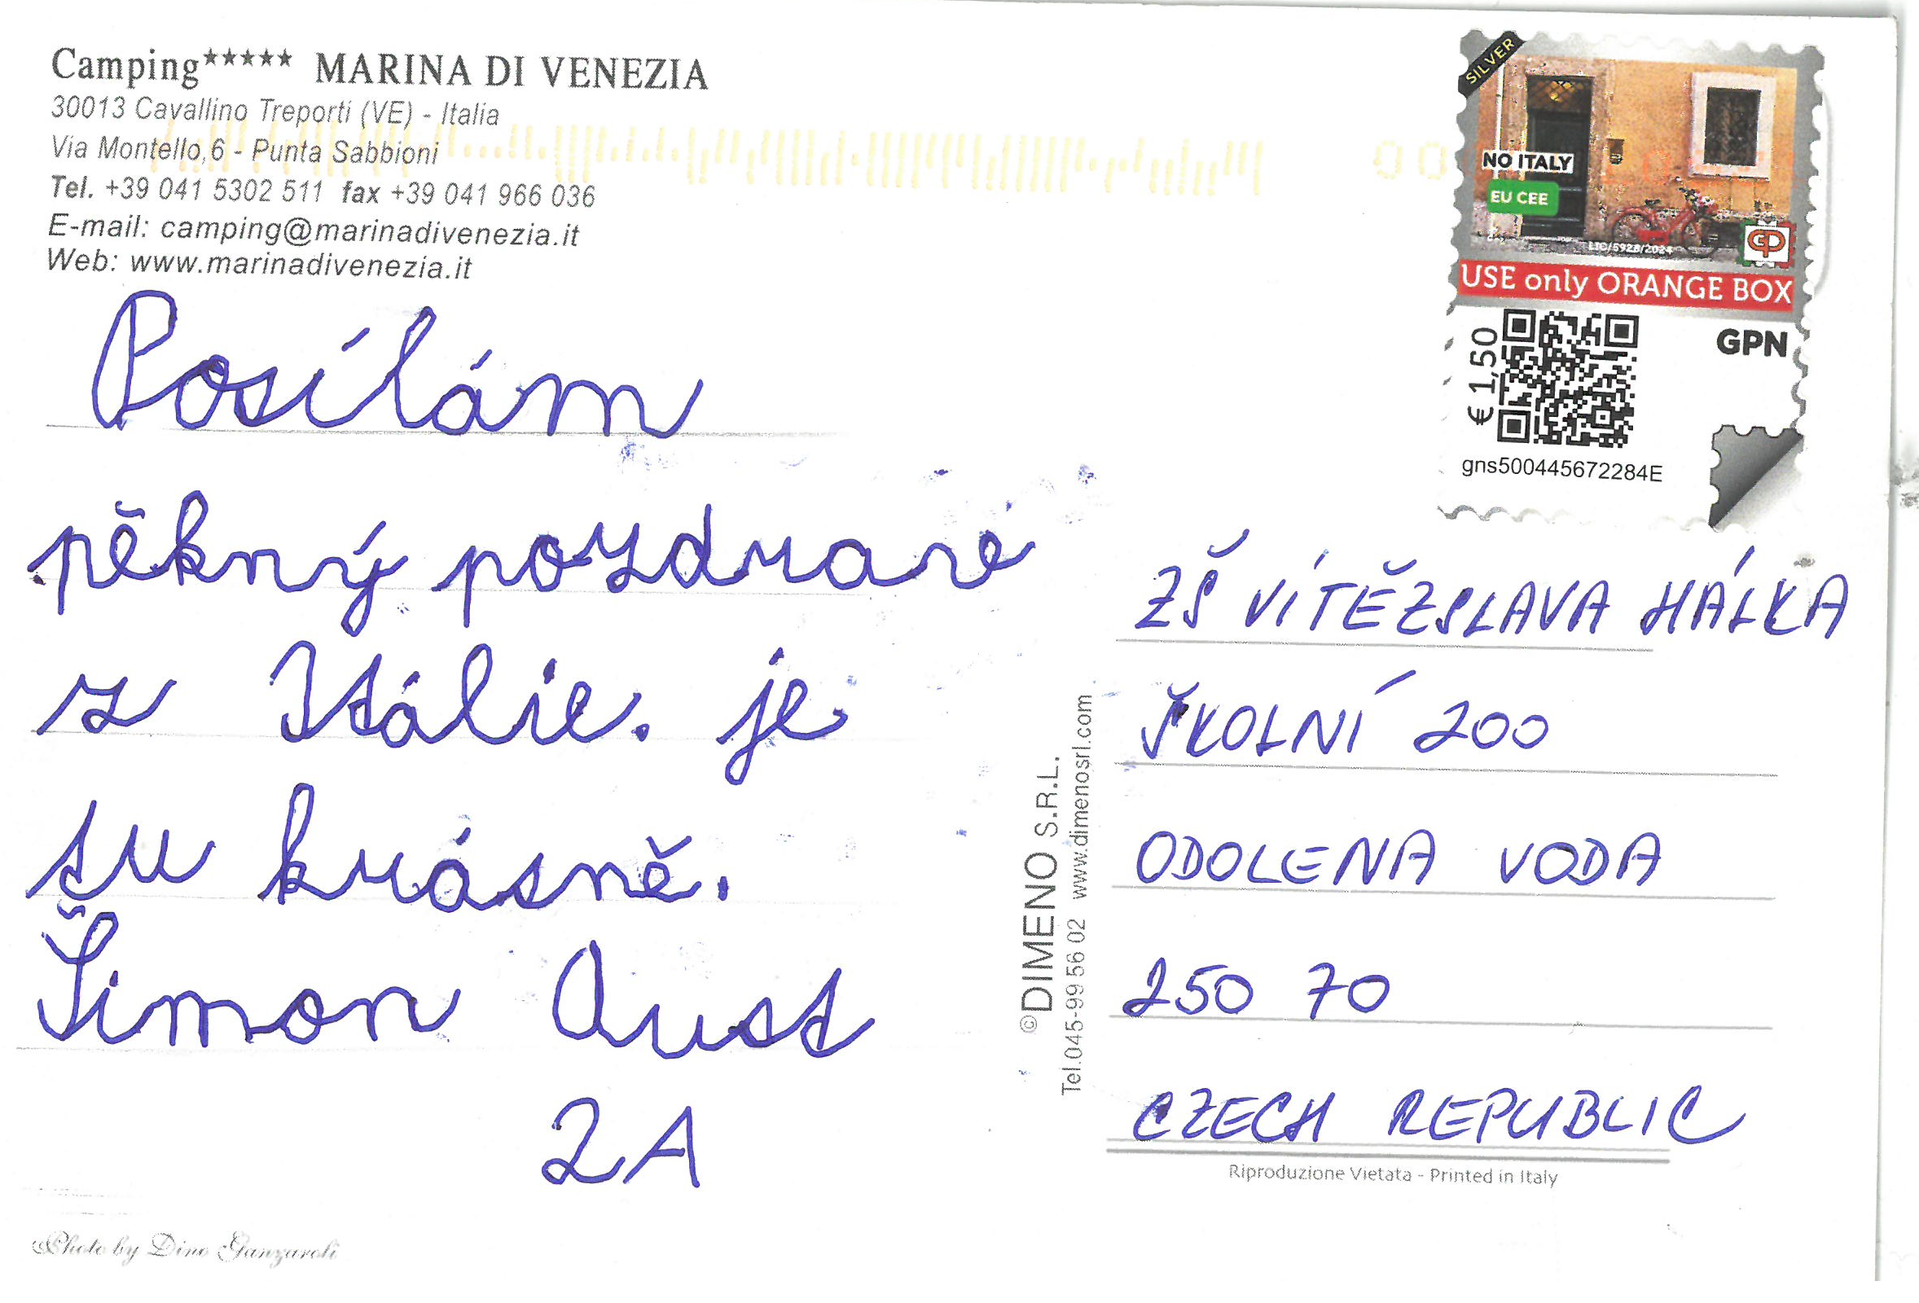 Camping***** MARINA DI VENEZIA
30013 Cavallino Treporti (VE) - Italia
Via Montello,6 - Punta Sabbioni
Tel. +39 041 5302 511 fax +39 041 966 036
E-mail: camping@marinadivenezia.it
Web: www.marinadivenezia.it
Posílám
pěkný pozdrav
z Itálie. je
tu krásně.
Šimon Aust
2A
Photo by Dino Ganzaroli
©DIMENO S.R.L.
Tel.045-99 56 02 www.dimenosrl.com
SILVER
NO ITALY
EU CEE
LIC/5928/2024
GP
USE only ORANGE BOX
€ 1,50
GPN
gns500445672284E
ZŠ VÍTĚZSLAVA HÁLKA
ŠKOLNÍ 200
ODOLENA VODA
250 70
CZECH REPUBLIC
Riproduzione Vietata - Printed in Italy